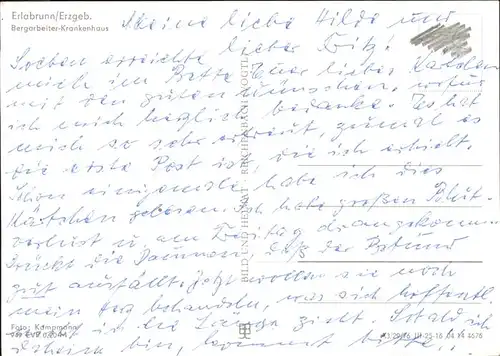 Erlabrunn/Erzgeb.
Bergarbeiter-Krankenhaus
Meine liebe Hildi und
lieber Fritz!
Soeben erreichte
mich im Bette Euer liebes Kärtchen
mit den guten Wünschen, wofür
ich mich herzlich bedanke. Es hat
mich so sehr erfreut, zumal es
die erste Post ist, die ich erhielt.
Schon einigemale habe ich dies
Kärtchen gelesen. Ich habe großen Blut-
verlust u. am Freitag drangekomm.
Drückt die Daumen, daß der Befund
gut ausfällt, jetzt wollen sie noch
mein Herz behandeln, was sich hoffentl.
nicht in die Länge zieht. Sobald ich
zuhause bin, kommt
BILD UND HEIMAT REICHENBACH (VOGTL)
Foto: Kampmann